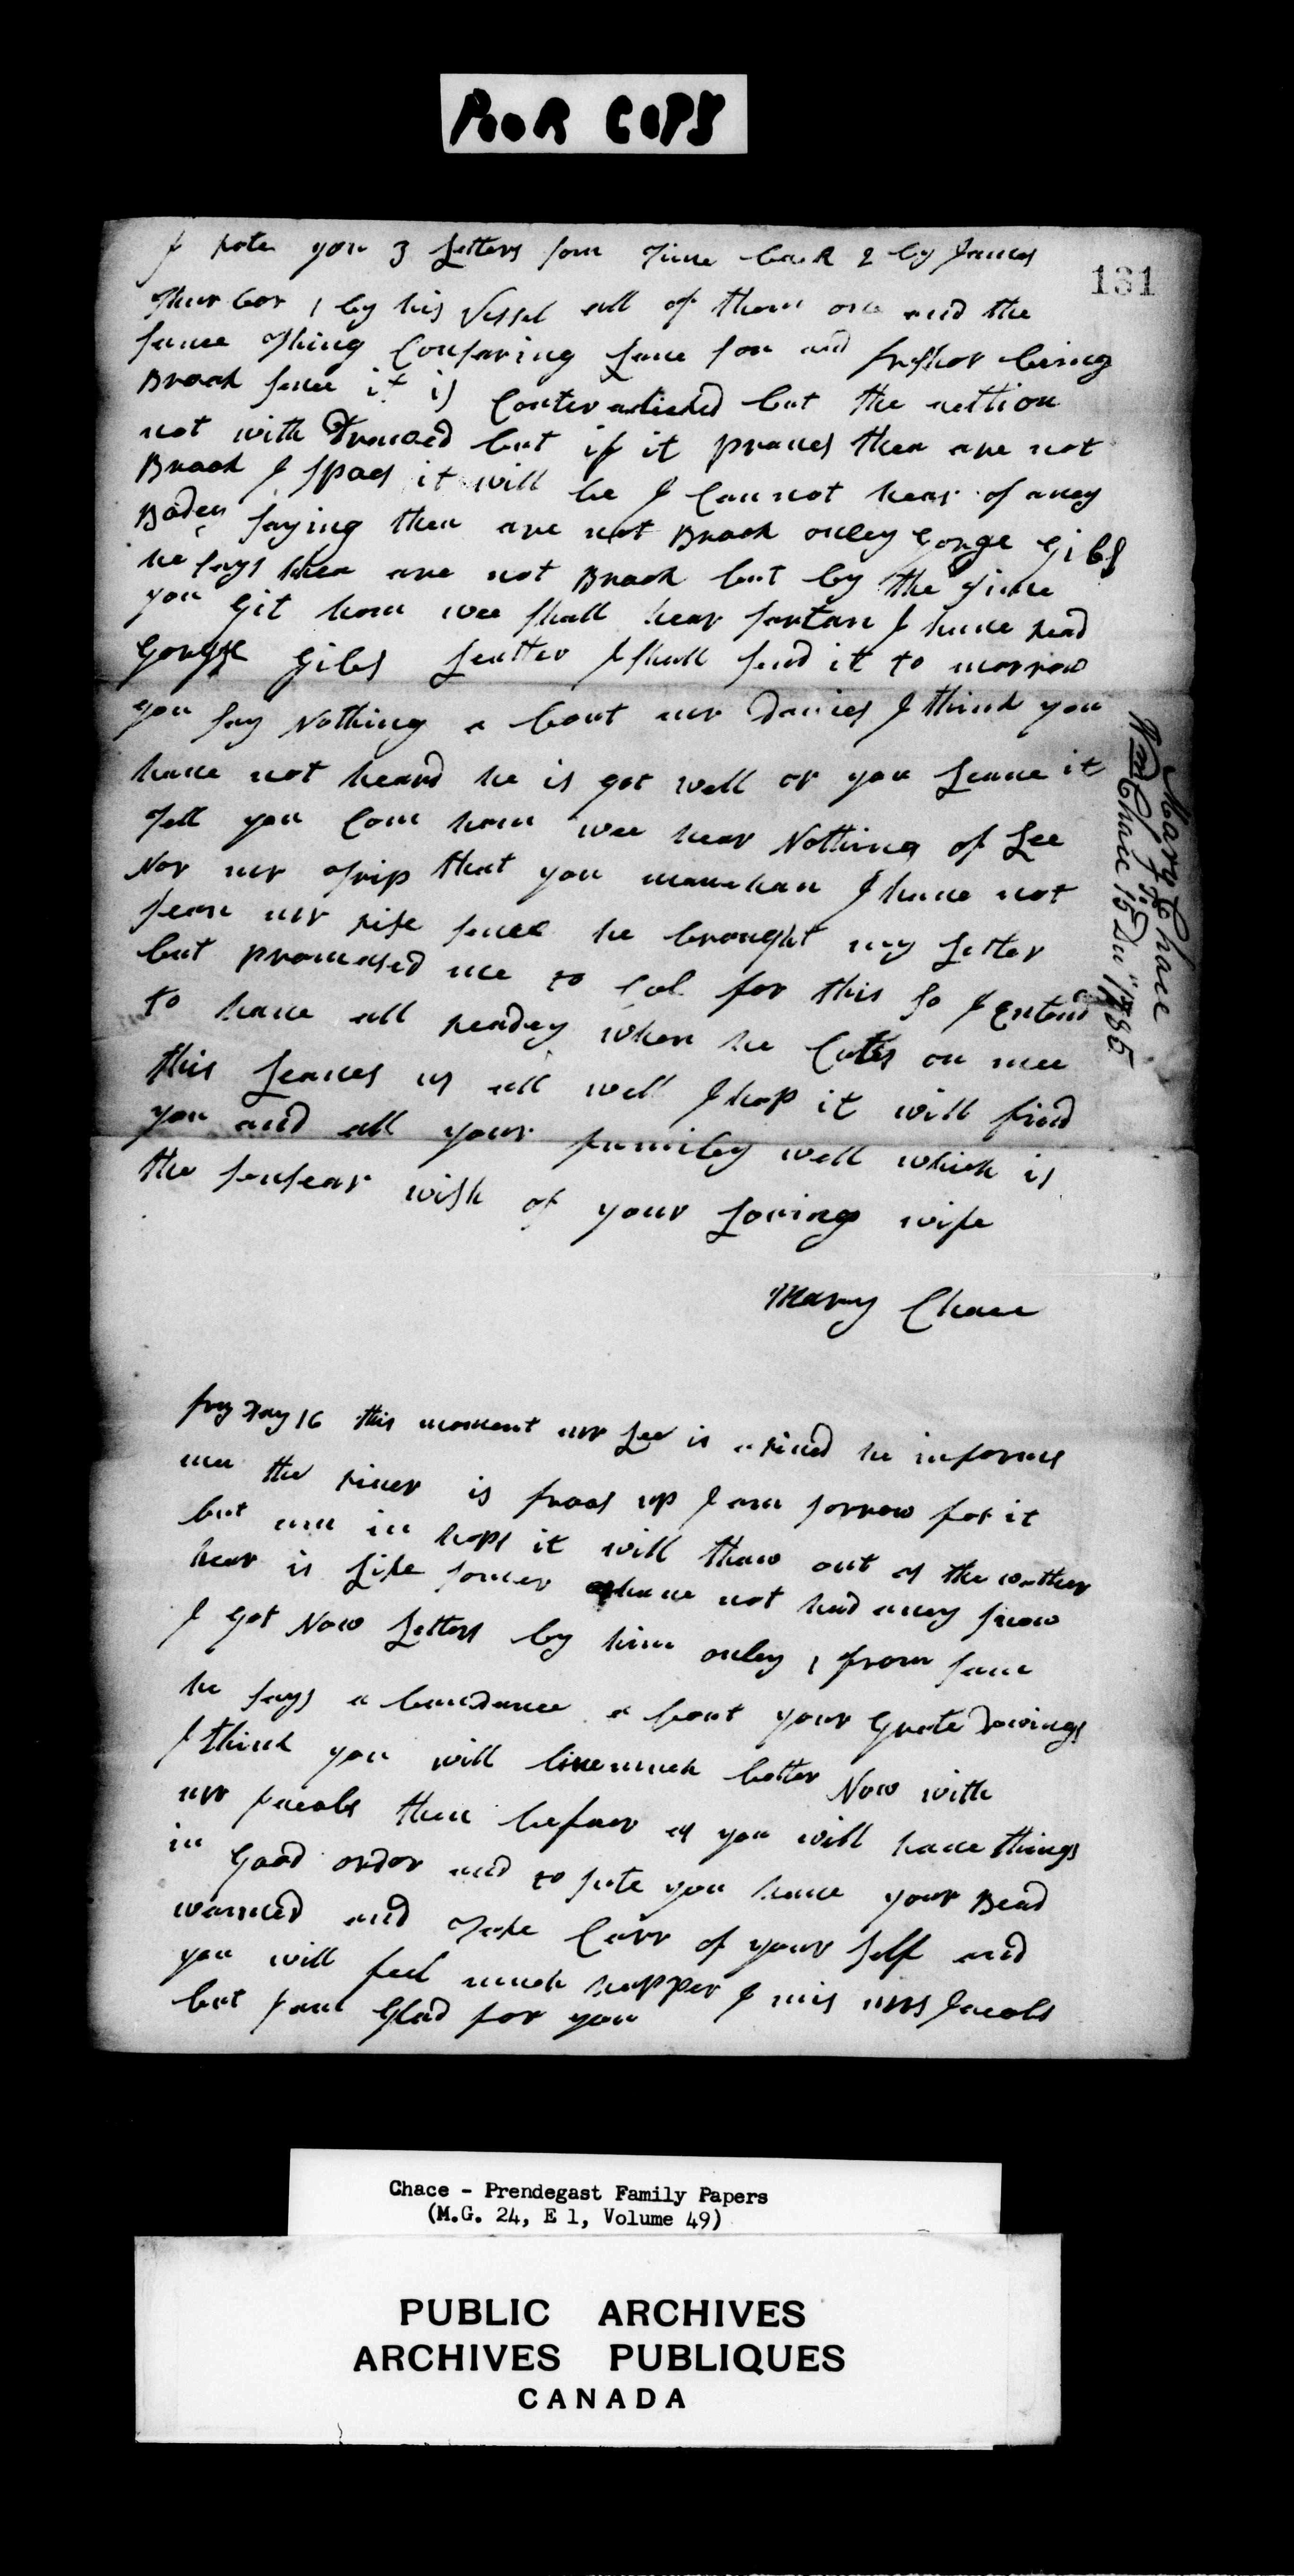 POOR COPY
131
I rote you 3 Letters som Time back 2 by James
Thurbor 1 by his Vessel all of them one and the
same Thing Consarning Sam son and being
Broak sence it is Conteradicted but the acttion
not with Drawed but if it proves thea are not
Broak I spoas it will be I Can not hear of aney
Bodey saying thea are not Broak onley Gorge Gibs
he says thea are not Broak but by the Time
you Git hom wee shall hear sartan I have read
Gorge Gibs Leatter I shall send it to morrow
you say Nothing a bout mr Davies I think you
have not heard he is got well or you Leave it
Tell you Com hom wee hear Nothing of Lee
Nor mr that you manchan I have not
sean mr sence he brought my Letter
but promased me to Col for this so I Entend
to have all readey when he Coles on mee
this Leaves us all well I hop it will find
you and all your familey well which is
the sensear wish of your Loving wife
Mary Chace
Mary Chace
Wm Chace 15 1785
fryday 16 this moment mr Lee is arived he informs
mee the river is froas up I am sorrow for it
but am in hops it will thaw out as the wather
hear is Like somer have not had aney snow
I Got Now Letters by him onley 1 from Sam
he says a bundance a bout your Grate Dowings
I think you will live much better Now with
mr Jacobs then befoar as you will have things
in Good ordor and to sute you have your Bead
warmed and Take Carr of your Self and
you will feel much happer I mis mrs Jacobs
but I am Glad for you
Chace - Prendegast Family Papers
(M.G. 24, E 1, Volume 49)
PUBLIC ARCHIVES
ARCHIVES PUBLIQUES
CANADA